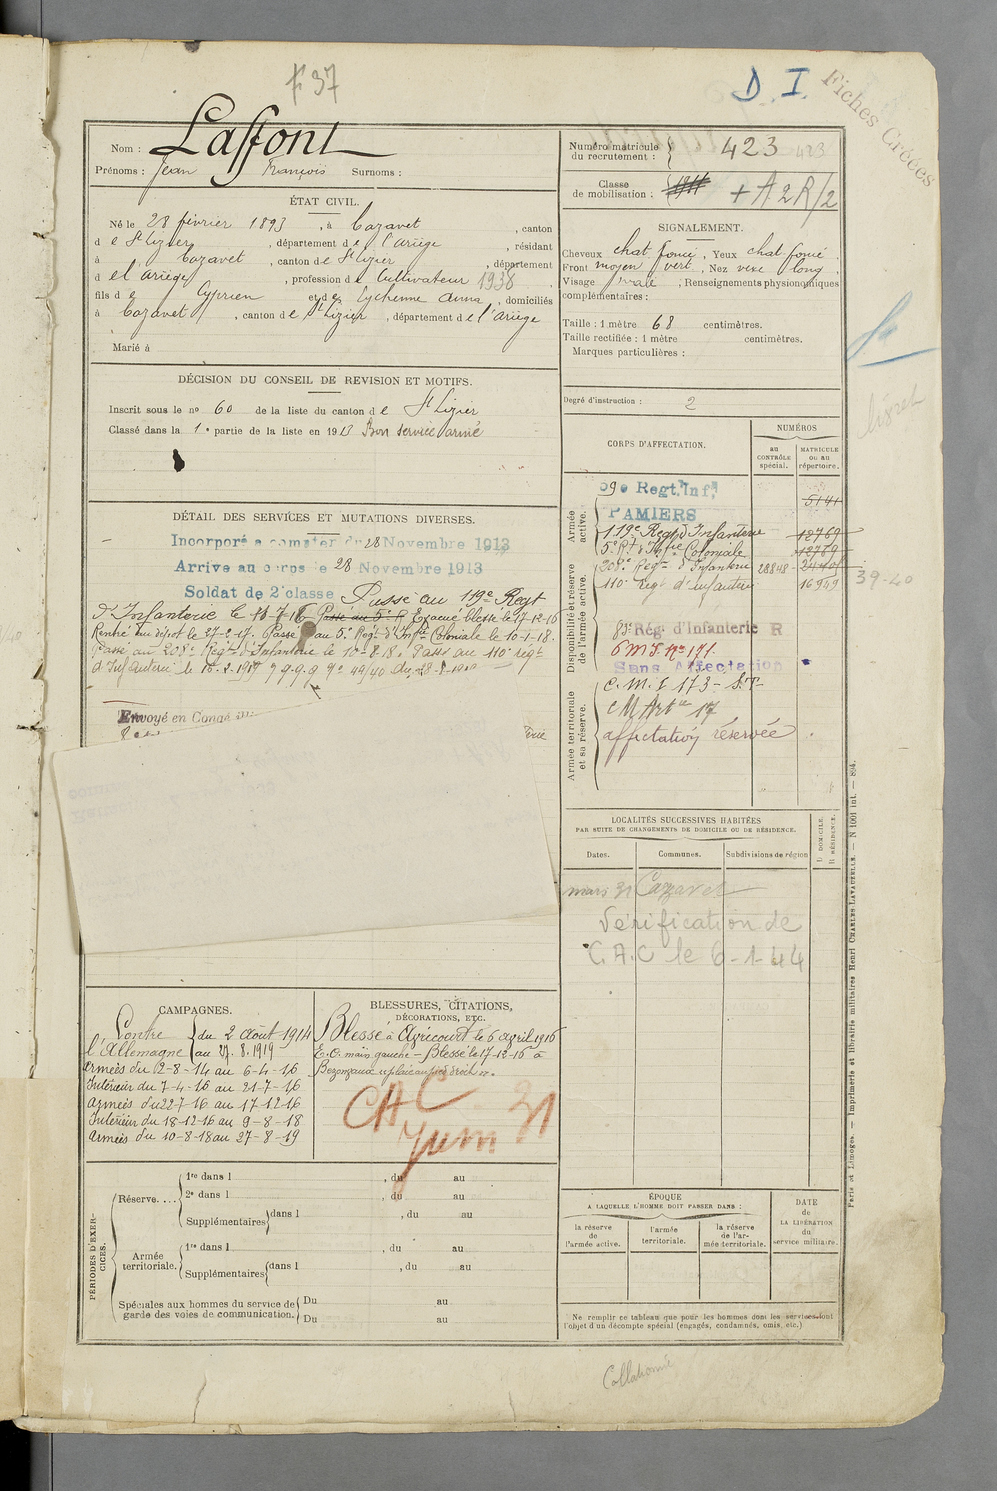 F 37
D. I.
Fiches Créées
Nom : Laffont
Prénoms : Jean François Surnoms :
Numéro matricule du recrutement : 423 423
Classe de mobilisation : 1911 + A 2 R/2
ÉTAT CIVIL.
Né le 28 février 1893, à Cazavet, canton
d e St Lizier, département d e l'Ariège, résidant
à Cazavet, canton d e St Lizier, département
d e l'Ariège, profession d e Cultivateur 1938
fils d e Cyprien et d e Eychenne Anna, domiciliés
à Cazavet, canton d e St Lizier, département d e l'Ariège
Marié à
SIGNALEMENT.
Cheveux chat foncé, Yeux chat foncé,
Front moyen vert, Nez vexe long,
Visage ovale ; Renseignements physionomiques
complémentaires :
Taille : 1 mètre 68 centimètres.
Taille rectifiée : 1 mètre centimètres.
Marques particulières :
DÉCISION DU CONSEIL DE REVISION ET MOTIFS.
Inscrit sous le no 60 de la liste du canton d e St Lizier
Classé dans la 1e partie de la liste en 1913 Bon service armé
Degré d'instruction : 2
CORPS D'AFFECTATION.
NUMÉROS
au CONTRÔLE spécial.
MATRICULE ou au répertoire.
DÉTAIL DES SERVICES ET MUTATIONS DIVERSES.
Incorporé a compter du 28 Novembre 1913
Arrive au corps le 28 Novembre 1913
Soldat de 2e classe Passé au 119e Regt
d'Infanterie le 11-7-16 Passé au 5e R Evacué blessé le 17-12-16
Rentré au dépot le 27-2-17. Passé au 5e Régt d'Infie Coloniale le 10-1-18.
Passé au 208e Régt d'Infanterie le 10-8-18. Passé au 110e régt
d'Infanterie le
Envoyé en Congé
Armée active.
Disponibilité et réserve de l'armée active.
Armée territoriale et sa réserve.
59e Regt. Inf. 5141
PAMIERS
119e Regt d'Infanterie 12769
5e Rt d'Infie Coloniale 12789
208e Regt d'Infanterie 28848
110e Régt d'infanterie 16949
39-40
83e Rég. d'Infanterie R
6 M I. No 171.
Sans Affectation
C. M. I 173 - S.T-
C M Artie 17
affectation réservée.
LOCALITÉS SUCCESSIVES HABITÉES
PAR SUITE DE CHANGEMENTS DE DOMICILE OU DE RÉSIDENCE.
Dates. Communes. Subdivisions de région
D DOMICILE. R RÉSIDENCE.
mars 31 Cazavet
Vérification de
C.A.C le 6-1-44
CAMPAGNES.
Contre l'Allemagne du 2 Août 1914
au 27.8.1919
Armées du 2-8-14 au 6-4-16
Intérieur du 7-4-16 au 21-7-16
Armées du 22-7-16 au 17-12-16
Intérieur du 18-12-16 au 9-8-18
Armées du 10-8-18 au 27-8-19
BLESSURES, CITATIONS,
DÉCORATIONS, ETC.
Blessé à Agricourt le 6 april 1916
E. O. main gauche - Blessé le 17-12-16 à
Bezonvaux
CAC. 31
Juin
PÉRIODES D'EXERCICES.
Réserve....
1re dans l , du au
2e dans l , du au
Supplémentaires dans l , du au
Armée territoriale.
1re dans l , du au
Supplémentaires dans l , du au
Spéciales aux hommes du service de
garde des voies de communication.
Du au
Du au
ÉPOQUE
A LAQUELLE L'HOMME DOIT PASSER DANS :
la réserve de l'armée active.
l'armée territoriale.
la réserve de l'armée territoriale.
DATE de LA LIBÉRATION du service militaire.
Ne remplir ce tableau que pour les hommes dont les services font
l'objet d'un décompte spécial (engagés, condamnés, omis, etc.)
Paris et Limoges. — Imprimerie et librairie militaires Henri CHARLES-LAVAUZELLE. — N 1001 int. — 894.
Collationné